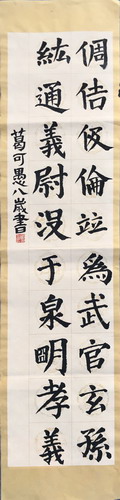 倜佶伇倫竝為武官玄孫
紘通義尉没于泉明孝義
葛可愚八歲書